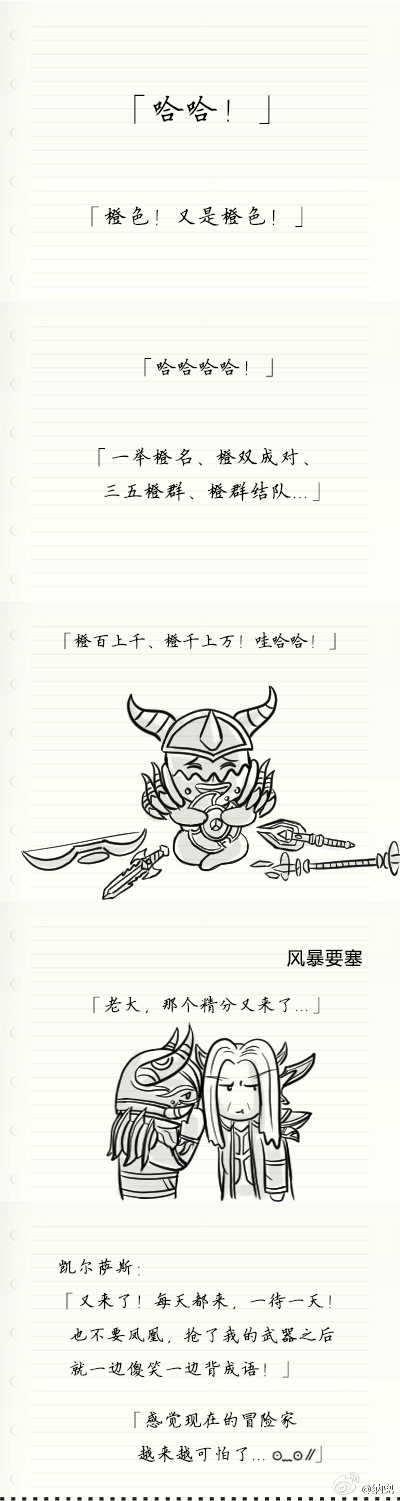 「哈哈！」
「橙色！又是橙色！」
「哈哈哈哈！」
「一举橙名、橙双成对、
三五橙群、橙群结队...」
「橙百上千、橙千上万！哇哈哈！」
风暴要塞
「老大，那个精分又来了...」
凯尔萨斯：
「又来了！每天都来，一待一天！
也不要凤凰，抢了我的武器之后
就一边傻笑一边背成语！」
「感觉现在的冒险家
越来越可怕了... ⊙﹏⊙∥」